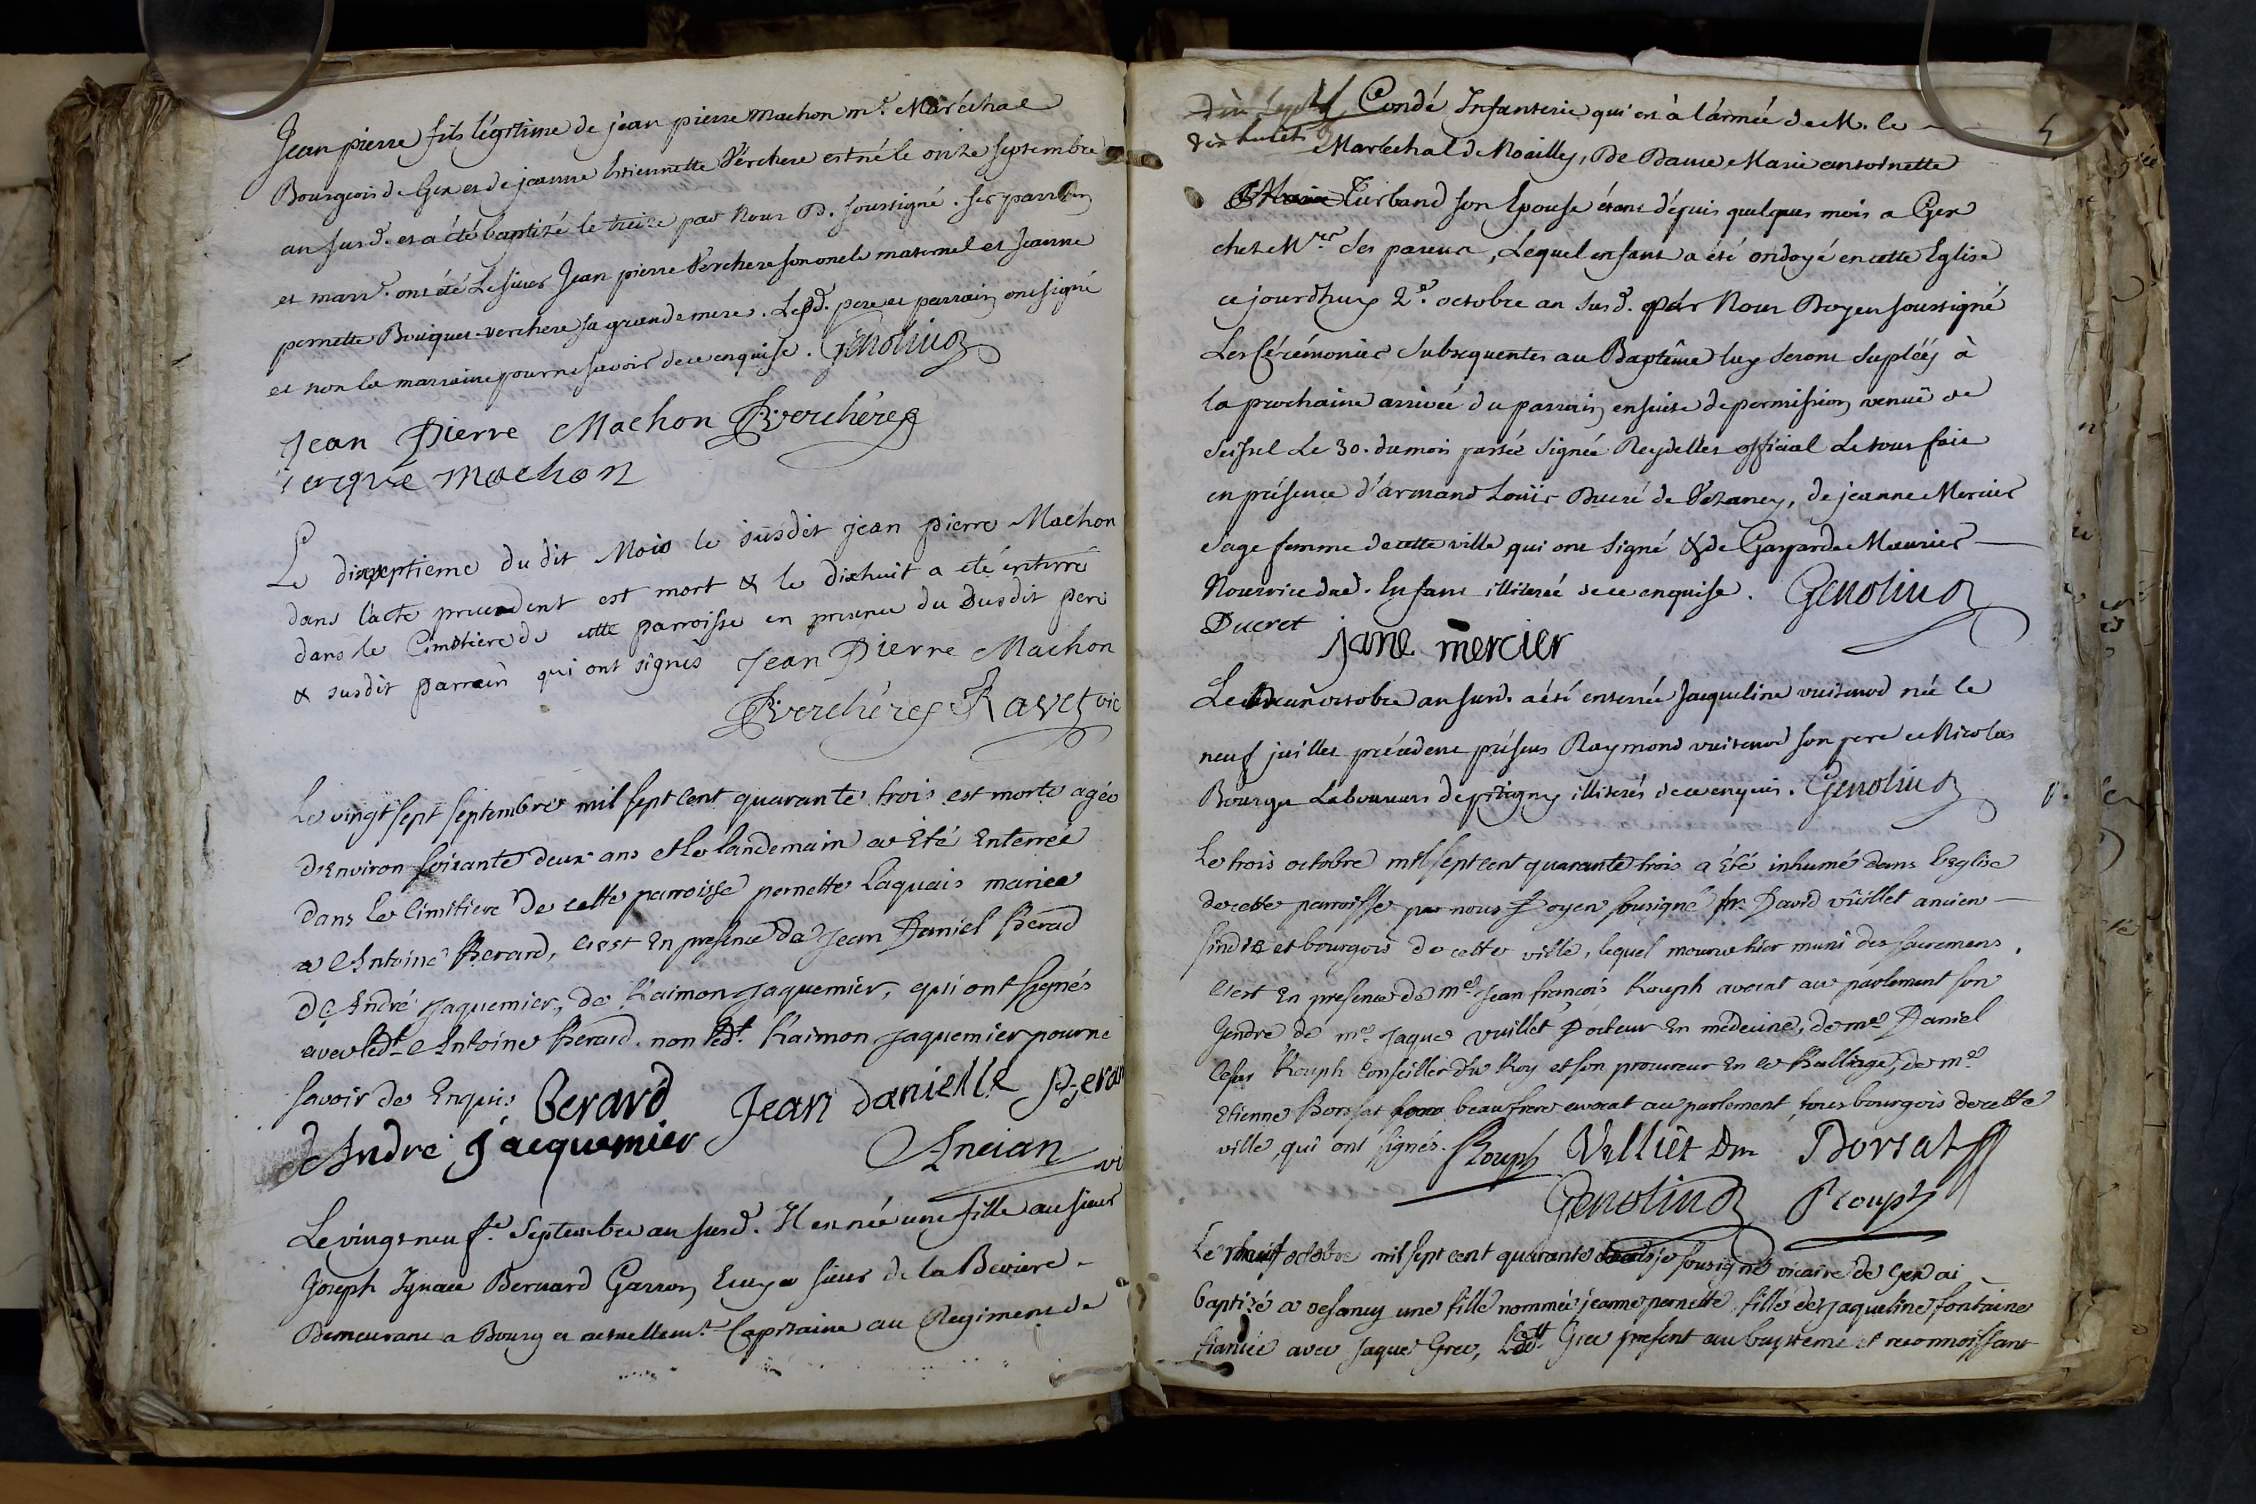 Jean pierre fils légitime de jean pierre Machon m.e Maréchal
Bourgeois de Gex et de jeanne Estiennette Verchere est né le onze septembre
an susd. et a été baptizé le treize par Nous D. soussigné. ses parrain
et marr.e ont été Le sieur Jean pierre Verchere son oncle maternel et Jeanne
pernette Bouquet-verchere sa grande mere. Lesd. pere et parrain ont signé
et non la marraine pour ne savoir de ce enquise. Genolin
Jean Pierre Machon Verchére
jacque machon
Le dixseptieme du dit Mois le susdit jean pierre Machon
dans l'acte precedent est mort & le dixhuit a eté enterré
dans le Cimetiere de cette parroisse en presence du susdit pere
& susdit parrain qui ont signés Jean Pierre Machon
Verchére Ravet vic
Le vingt sept septembre mil sept cent quarante trois est morte agée
d'Environ soixante deux ans et le landemain a Eté Enterrée
dans le cimitiere de cette parroisse pernette Laquais mariée
a Antoine Berard, c'est En presence de Jean Daniel Berad
d'André Jaquemier, de Raimon Jaquemier, qui ont signés
avec led.t Antoine Berard. non led.t Raimon Jaquemier pour ne
savoir de Enquis Berard Jean danielle Berar
André Jacquemier Ancian vi
Le vingt neuf.e Septembre an susd. Il est née une fille au sieur
Joseph Ignace Bernard Garron Ecuyer sieur de la Beviere
Demeurant a Bourg et actuellem.t Capitaine au Regiment de
dix sept
dix huict
Condé Infanterie qui est à l'armée de M. le
Maréchal de Noailles, De Dame Marie antoinette
Turband son Epouse étant dépuis quelques mois a Gex
chez M.rs ses parens, Lequel enfant a été ondoyé en cette Eglise
ce jourdhuy 2.e octobre an susd. par Nous Doyen soussigné
Les Cérémonies subsequentes au Baptême luy seront supléés à
la prochaine arrivée du parrain ensuite de permission venuë de
Seissel le 30. du mois passée signée Reydellet official Le tout fait
en présence d'armand Louïs Ducré de Vezancy, de jeanne Mercier
sage femme de cette ville qui ont signé & de Gasparde Meunier
Nourrice dud. Enfant illiterée de ce enquise. Genolin
Ducret jane mercier
Le deux octobre an susd. a été enterrée Jacqueline vuitenod née le
neuf juillet précédent présens Raymond vuitenod son pere et Nicolas
Bourges Laboureurs de pitigny illiterés de ce enquis. Genolin
Le trois octobre mil sept cent quarante trois a Eté inhumé dans l'eglise
de cette parroisse par nous Doyen sousigné sr. David vuillet ancien
sindic et bourgois de cette ville, lequel mourut hier muni des sacremens,
c'est En presence de m.e Jean françois Rouph avocat au parlement son
Gendre de m.e Jaque vuillet Docteur En medecine, de m.e Daniel
Cesar Rouph Conseiller du Roy et son procureur En ce Balliage, de m.e
Etienne Borssat beaufrere avocat au parlement, tous bourgois de cette
ville, qui ont signés. Rouph Vulliet Dm Borsat
Genolin Rouph
Le huit octobre mil sept cent quarante trois je sousigné vicaire de Gex ai
baptizé a vesancy une fille nommée jeanne pernette, fille de jaqueline fontaine
fiancée avec Jaque Grec, led.t Grec present au baptême et reconnoissant